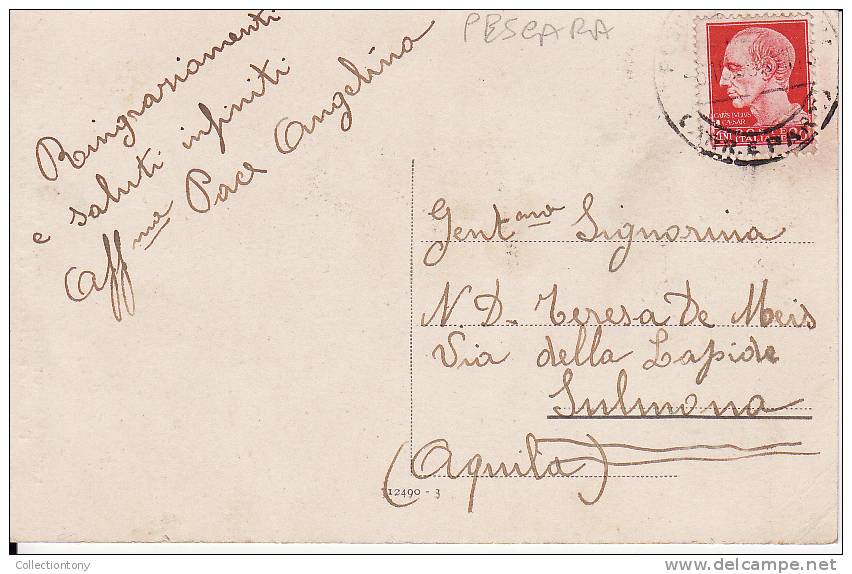 PESCARA
Ringraziamenti
e saluti infiniti
Aff ma Pace Angelina
CAIVS IVLIVS
CAESAR
ITALIA
Gent ma Signorina
N. D. Teresa De Meis
Via della Lapide
Sulmona
(Aquila)
12490 - 3
Collectiontony
delcampe.net